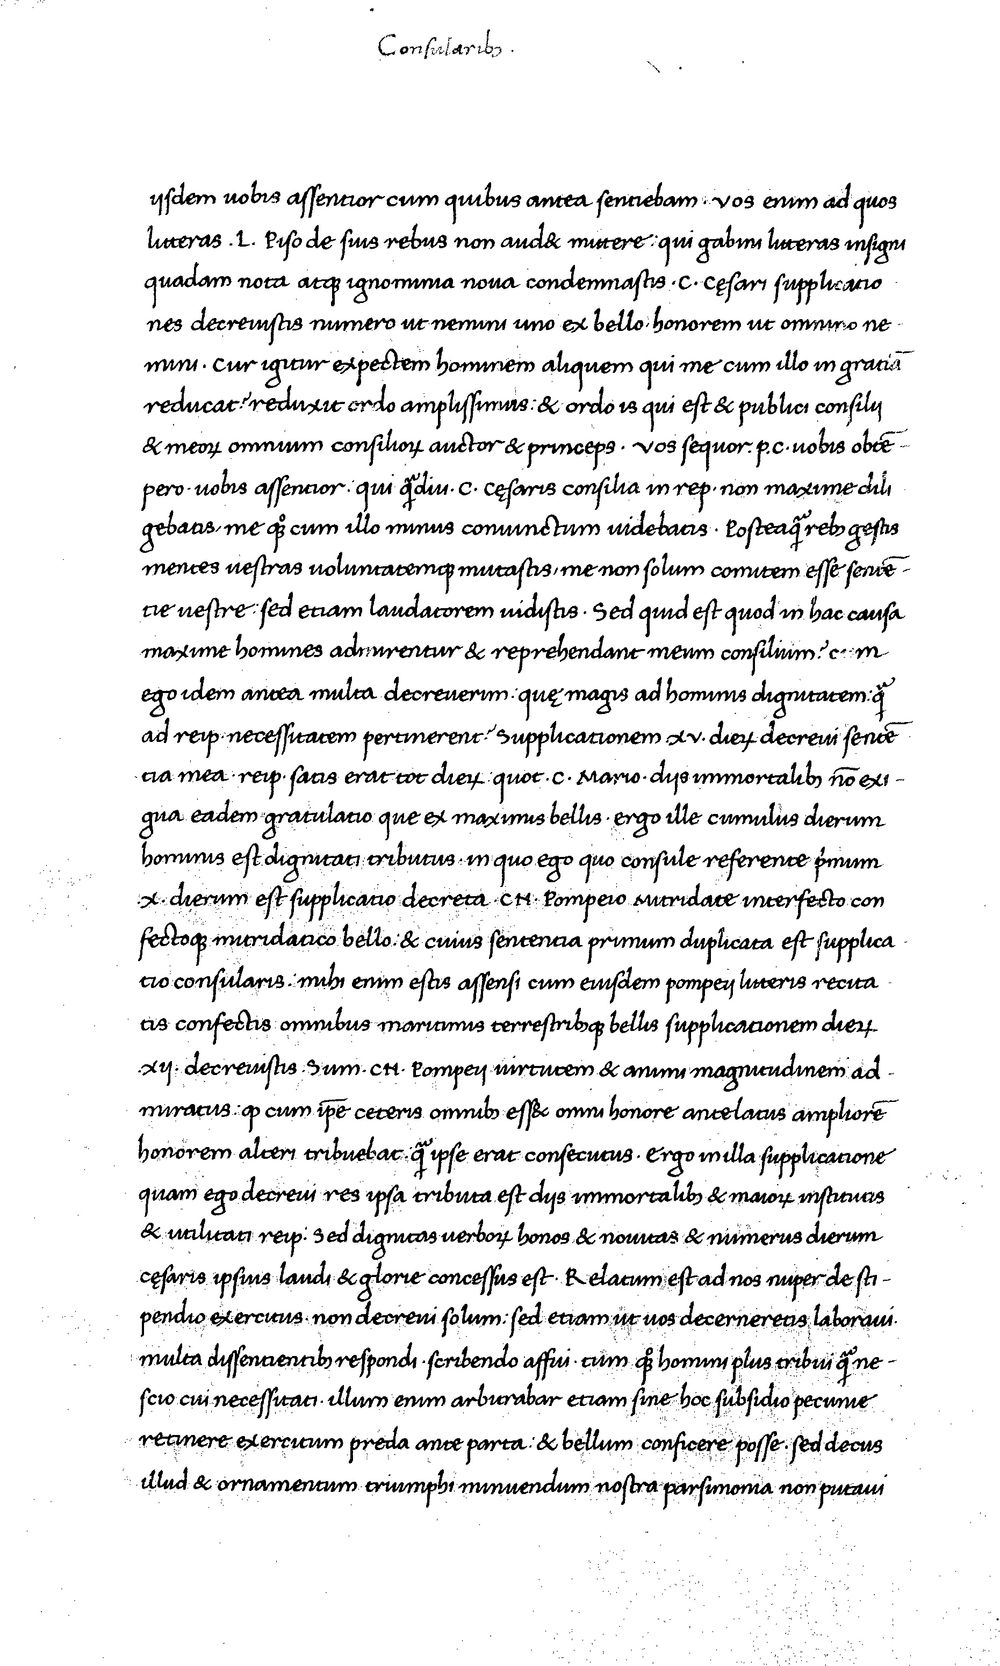 Consularibꝫ .
ijsdem uobis assentior cum quibus antea sentiebam . Vos enim ad quos
litteras . L . Piso de suis rebus non aud& mittere : qui gabini litteras insigni
quadam nota atqꝫ ignominia noua condemnastis . C . Cęsari supplicatio
nes decreuistis numero ut nemini uno ex bello honorem ut omnino ne -
mini . Cur igitur expectem hominem aliquem qui me cum illo in gratiā
reducat ? reduxit ordo amplissimus : & ordo is qui est & publici consilij
& meoꝝ omnium consilioꝝ auctor & princeps . Vos sequor . p . c . uobis obtē -
pero . uobis assentior : qui qᷓdiu . C . Cęsaris consilia in rep . non maxime dili
gebatis , me qꝫ cum illo minus coniunctum uidebatis . Posteaqᷓ rebꝫ gestis
mentes uestras uoluntatemqꝫ mutastis , me non solum comitem esse sentē -
tie uestre : sed etiam laudatorem uidistis . Sed quid est quod in hac causa
maxime homines admirentur & reprehendant meum consilium ? cum
ego idem antea multa decreuerim : quę magis ad hominis dignitatem : qᷓ
ad reip . necessitatem pertinerent ? Supplicationem . XV . dieꝝ decreui sentē
tia mea . reip . satis erat tot dieꝝ quot . C . Mario . dijs immortalibꝫ nō exi -
gua eadem gratulatio que ex maximis bellis . ergo ille cumulus dierum
hominis est dignitati tributus . in quo ego quo consule referente pͥmum
. X . dierum est supplicatio decreta . CN . Pompeio Mitridate interfecto con
fectoqꝫ mitridatico bello : & cuius sententia primum duplicata est supplica
tio consularis : mihi enim estis assensi cum eiusdem pompeij litteris recita
tis confectis omnibus maritimis terrestribꝫqꝫ bellis supplicationem dieꝝ
. XII . decreuistis . Sum . CN . Pompeij uirtutem & animi magnitudinem ad -
miratus : ꝙ cum ip̄e ceteris omnibꝫ ess& omni honore antelatus ampliorē
honorem alteri tribuebat : qᷓ ipse erat consecutus . Ergo in illa supplicatione
quam ego decreui res ipsa tributa est dijs immortalibꝫ & maioꝝ institutis
& utilitati reip . Sed dignitas uerboꝝ honos & nouitas & numerus dierum
cęsaris ipsius laudi & glorie concessus est . Relatum est ad nos nuper de sti -
pendio exercitus . non decreui solum : sed etiam ut uos decerneretis laboraui .
multa dissentientibꝫ respondi . scribendo affui . tum qꝫ homini plus tribui qᷓ ne -
scio cui necessitati . illum enim arbitrabar etiam sine hoc subsidio pecunie
retinere exercitum preda ante parta : & bellum conficere posse . sed decus
illud & ornamentum triumphi minuendum nostra parsimonia non putaui